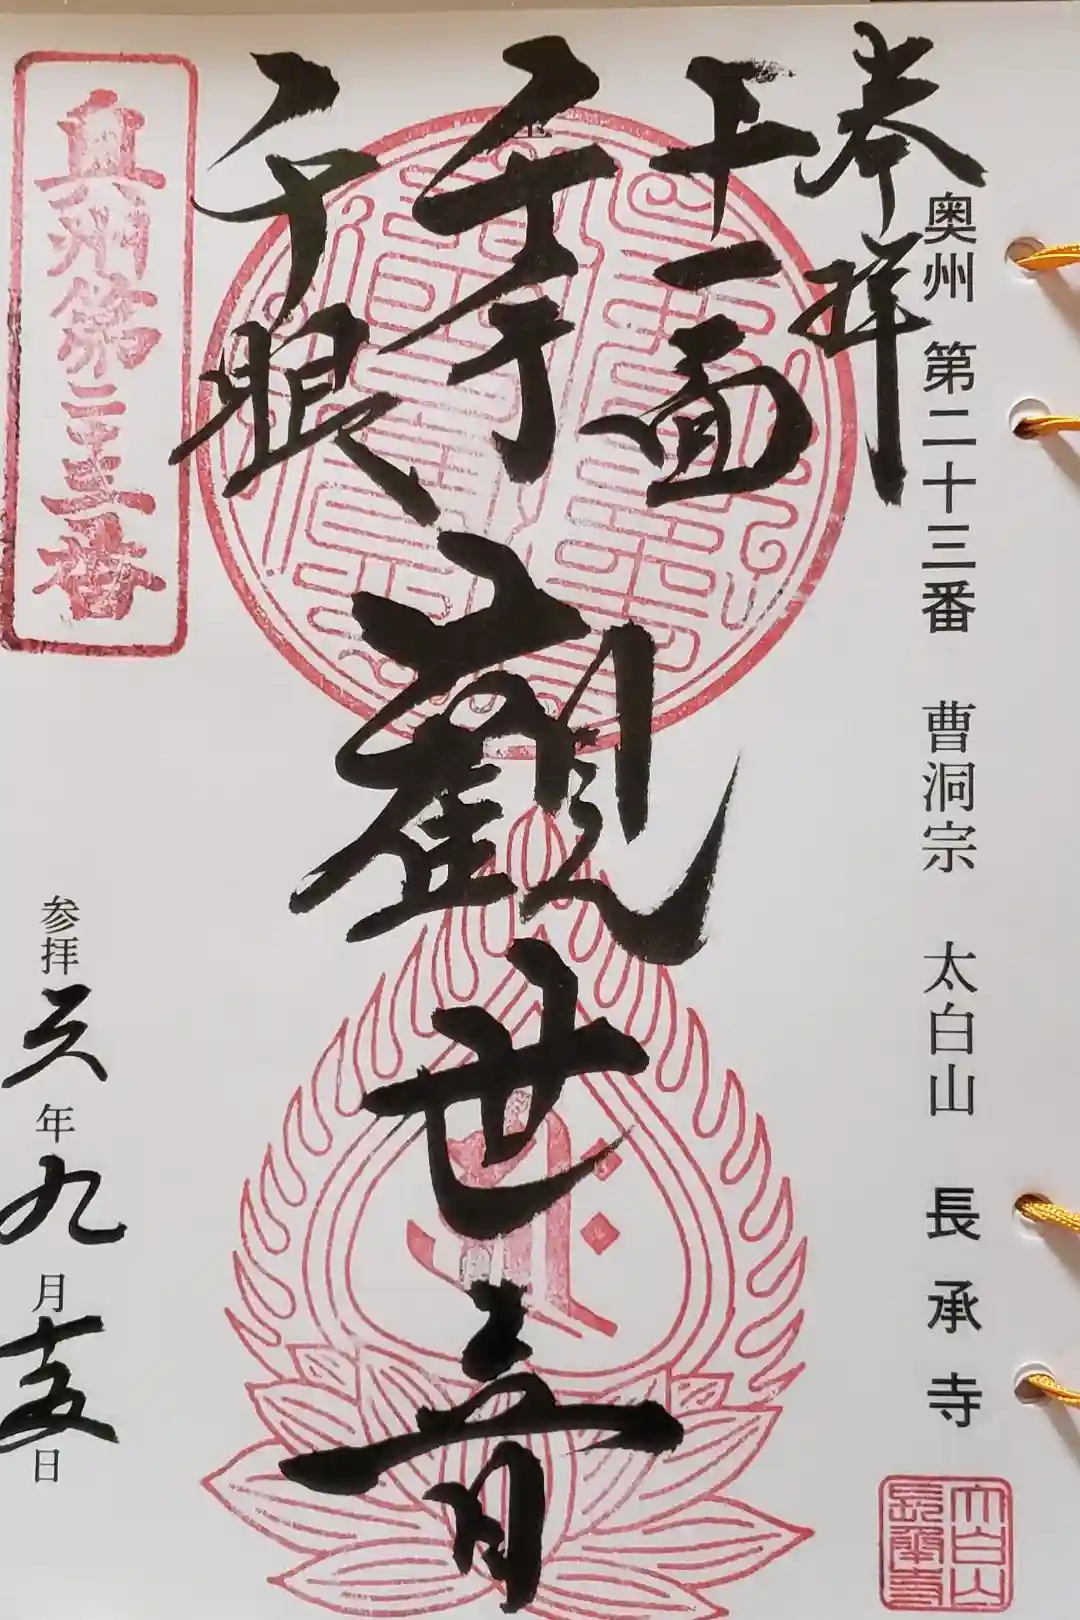 奥州 第二十三番 曹洞宗 太白山 長承寺
奉拝
十一面
千手
千眼
觀世音
奥州第二十三番
参拝 六年九月十五日
太白山
長承寺